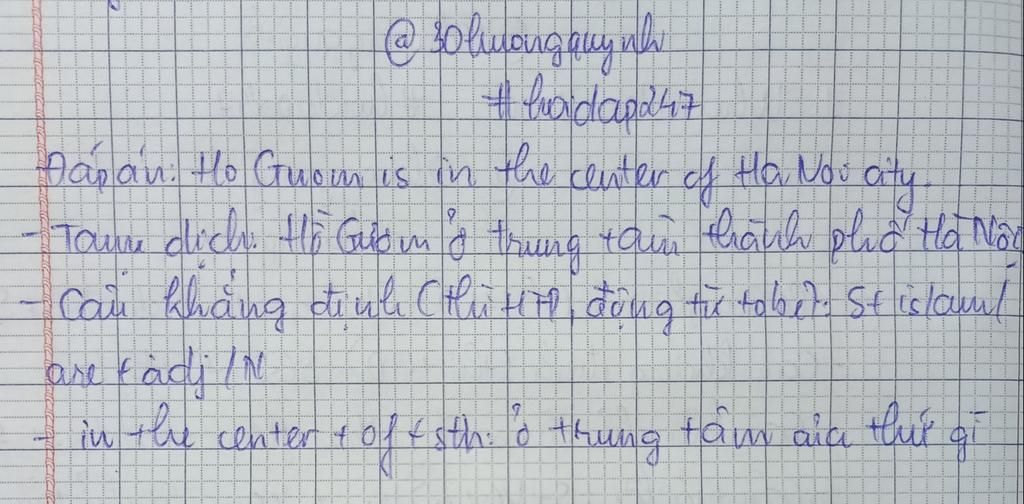 @ 30huongquynh
# hoidap247
Đáp án: Ho Guom is in the center of Ha Noi city.
- Tạm dịch: Hồ Gươm ở trung tâm thành phố Hà Nội
- Câu khẳng định (thì HTĐ, động từ tobe): S + is/am/
are + adj/N
- in the center + of + sth: ở trung tâm của thứ gì